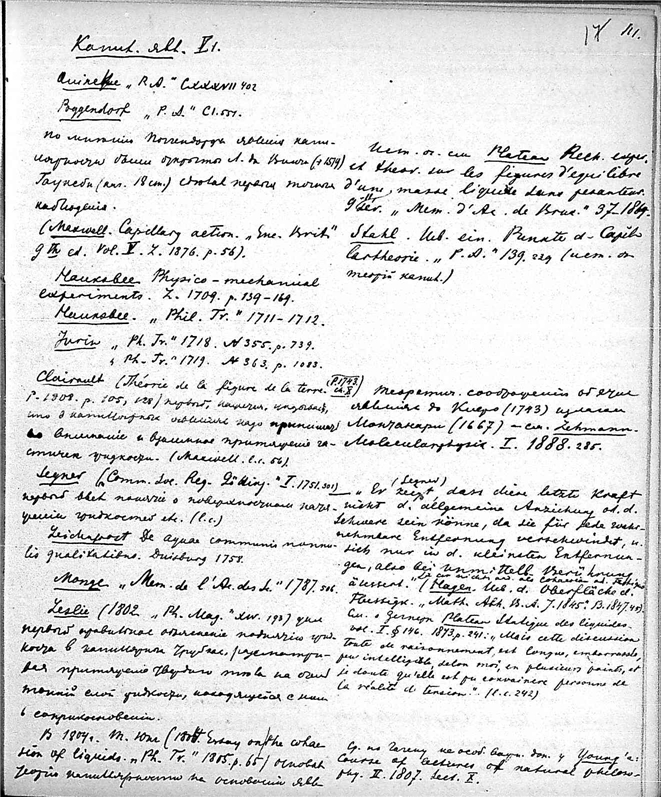 111.
Капил. явл. V1.
Quincke „R. A." CXXXVII 402
Poggendorf „P. A." CI.551.
по мнению Поггендорфа явления капил-
лярности были открыты Л. да Винчи († 1519)
наблюдения.
(Maxwell. Capillary action. „Enc. Brit."
9th ed. Vol. V. L. 1876. p. 56).
Hauksbee Physico-mechanical
experiments. L. 1709. p. 139-169.
Hauksbee. „Phil. Tr." 1711-1712.
Jurin „Ph. Tr." 1718. № 355. p. 739.
„Ph. Tr." 1719. № 363. p. 1083.
Clairault (Théorie de la figure de la terre. P. 1743.
P. 1808. p. 105, 128) первый,
что в капиллярных явлениях надо
во внимание и взаимное притяжение ча-
стичек жидкости. (Maxwell. l. c. 56).
Segner („Comm. Soc. Reg. Götting." I. 1751. 301)
первый ввел понятие о поверхностном натя-
жении жидкостей etc. (l. c.)
Leidenfrost De aquae communis nonnul-
lis qualitatibus. Duisburg 1756.
Monge „Mem. de l'Ac. des Sc." 1787. 506.
Leslie (1802 „Ph. Mag." XIV. 193) дал
первый правильное объяснение поднятию жид-
кости в капиллярных трубках, рассматри-
вая притяжение твердого тела на
тонкий слой жидкости, находящейся с ним
в соприкосновении.
В 1804 г. Т. Юнг (Essay on the cohe-
sion of liquids. „Ph. Tr." 1805. p. 65) основал
теорию капиллярности на основании явл-
Ист. оч. см. Plateau Rech. exper.
et theor. sur les figures d'equilibre
d'une masse liquide sans pesanteur.
„Mem. d'Ac. de Brux." 37. 1869.
Stahl. Ueb. ein. Punkte d. Capil-
lartheorie. „P. A." 139. 239 (ист. оч.
теорий капил.)
Теоретич. соображения об этих
явлениях до Клеро (1743) излагал
Монтанари (1667) – см. Lehmann.
Molecularphysik. I. 1888. 285.
„Er (Segner) zeigt, dass diese letzte Kraft
nicht d. allgemeine Anziehung od. d.
Schwere sein könne, da sie für jede wahr-
nehmbare Entfernung verschwindet, u.
sich nur in d. kleinsten Entfernun-
gen, also bei unmittelb. Berührung
äussert." (Hagen. Ueb. d. Oberfläche d.
Flüssigk. „Math. Abh. B. A. J. 1845." B. 1847. 41).
См. о Plateau Statique des liquides.
vol. I. § 146. 1873. p. 241: „Mais cette discussion
toute de raisonnement, est longue, embarrassée,
peu intelligible, selon moi, en plusieurs points, et
je doute qu'elle ait pu convaincre personne de
la réalité d. tension". (l. c. 242)
Ср. по у Young'a:
Course of lectures of natural philoso-
phy. II. 1807. Sect. X.